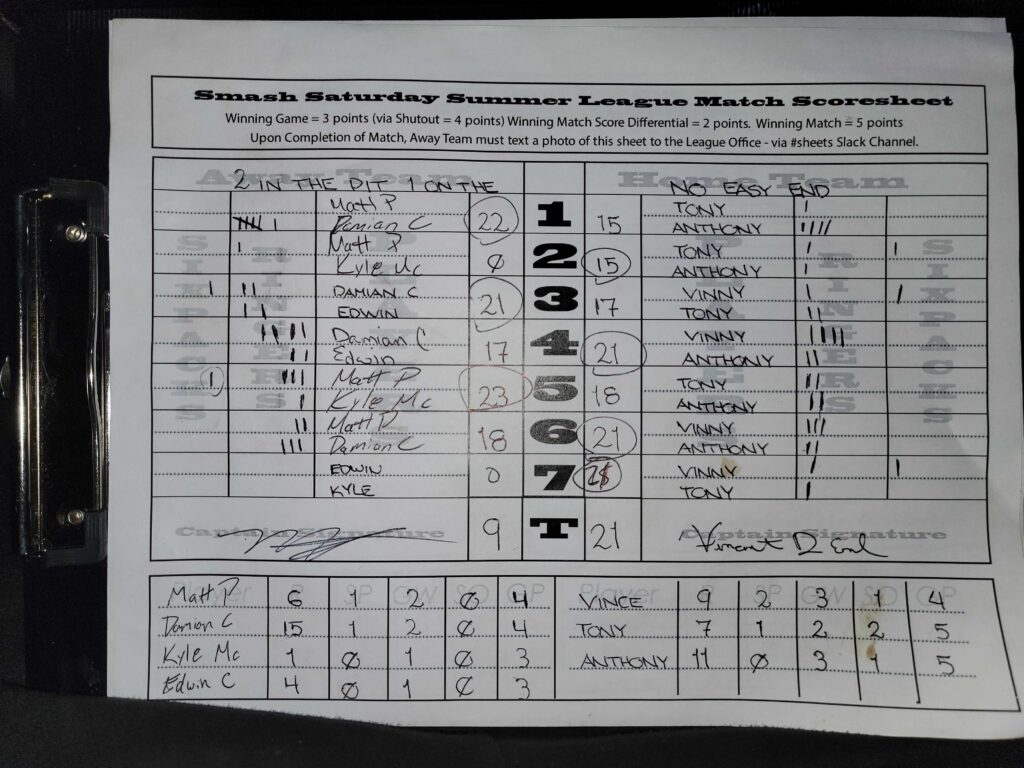 Smash Saturday Summer League Match Scoresheet
Winning Game = 3 points (via Shutout = 4 points) Winning Match Score Differential = 2 points. Winning Match = 5 points
Upon Completion of Match, Away Team must text a photo of this sheet to the League Office - via #sheets Slack Channel.
Away Team Home Team
2 IN THE DIT 1 ON THE NO EASY END
SIXPACKS RINGERS PLAYERS PLAYERS RINGERS SIXPACKS
Matt P TONY
Damian C 22 1 15 ANTHONY
Matt P TONY
Kyle Mc 0 2 15 ANTHONY
DAMIAN C VINNY
EDWIN 21 3 17 TONY
Damian C VINNY
Edwin 17 4 21 ANTHONY
Matt P TONY
Kyle Mc 23 5 18 ANTHONY
Matt P VINNY
Damian C 18 6 21 ANTHONY
EDWIN VINNY
KYLE 0 7 TONY
Captain Signature 9 T 21 Captain Signature
Player R SP GW SO GP Player R SP GW SO GP
Matt P 6 1 2 0 4 VINCE 9 2 3 1 4
Damian C 15 1 2 0 4 TONY 7 1 2 2 5
Kyle Mc 1 0 1 0 3 ANTHONY 11 0 3 1 5
Edwin C 4 0 1 0 3